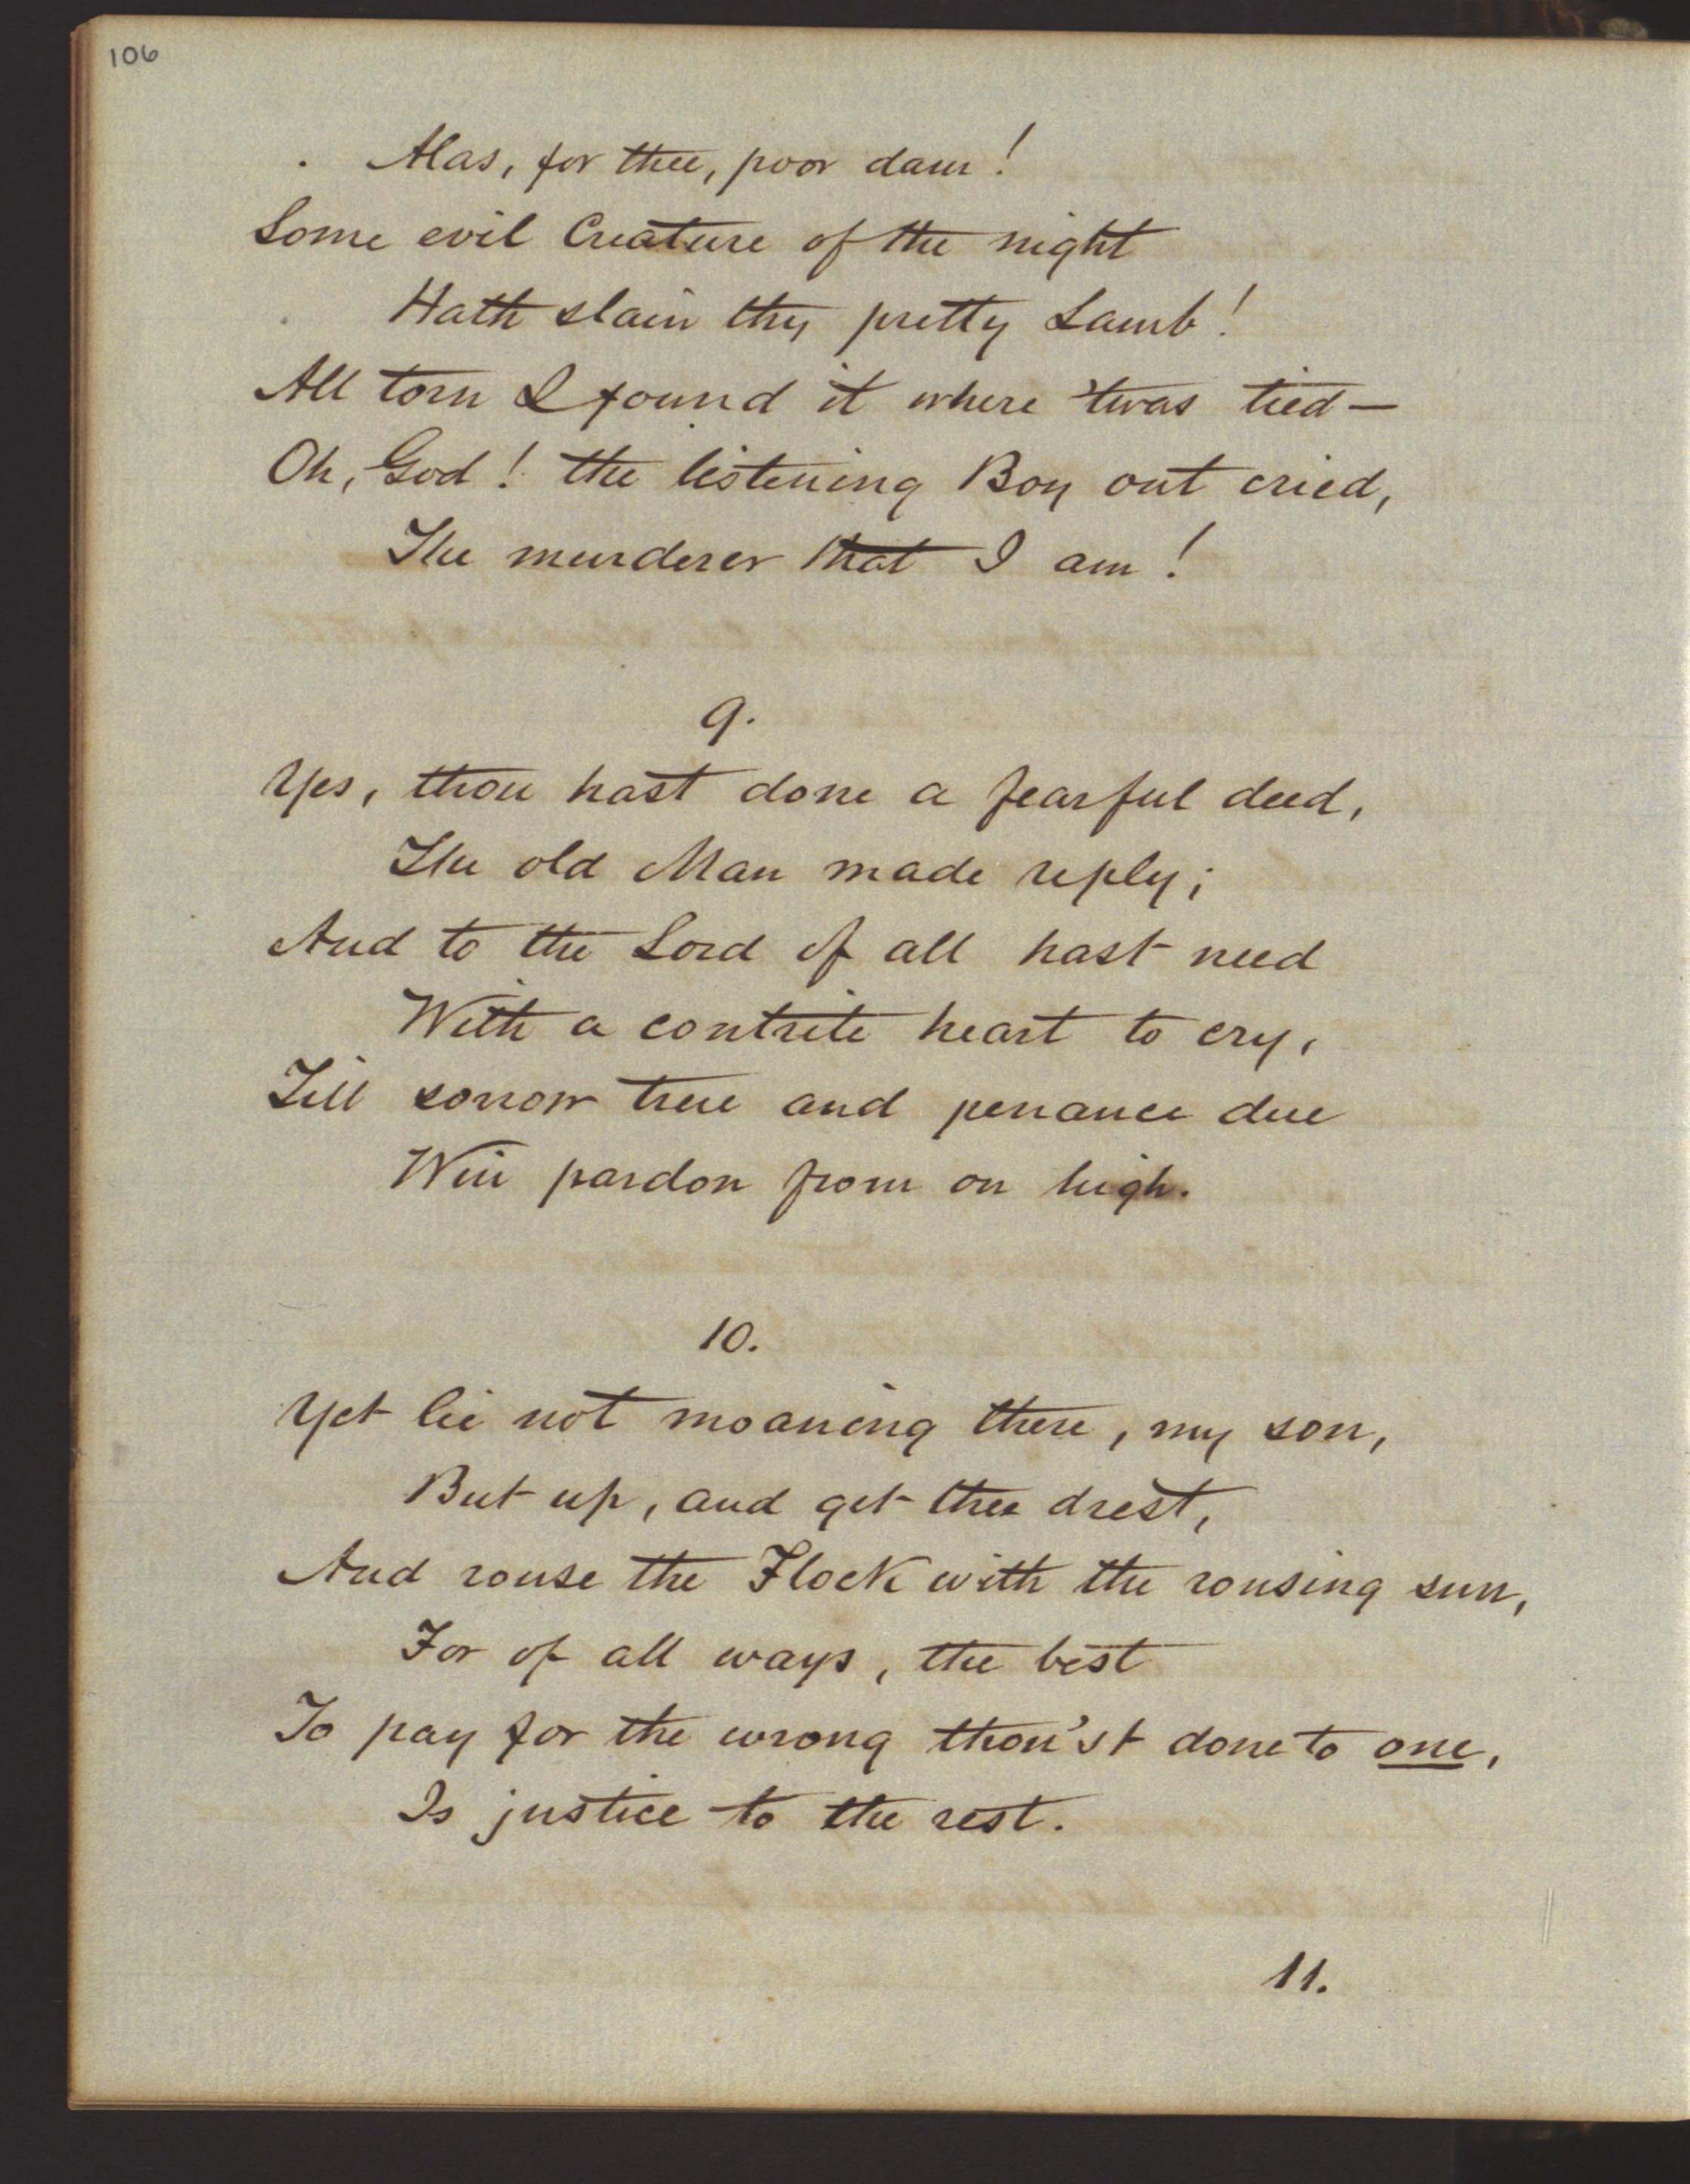 106
Alas, for thee, poor dam!
Some evil Creature of the night
Hath slain thy pretty Lamb!
All torn I found it where 'twas tied—
Oh, God! the listening Boy out cried,
The murderer that I am!
9.
Yes, thou hast done a fearful deed,
The old Man made reply;
And to the Lord of all hast need
With a contrite heart to cry,
Till sorrow true and penance due
Win pardon from on high.
10.
Yet lie not moaning there, my son,
But up, and get thee drest,
And rouse the Flock with the rousing sun,
For of all ways, the best
To pay for the wrong thou'st done to one,
Is justice to the rest.
11.